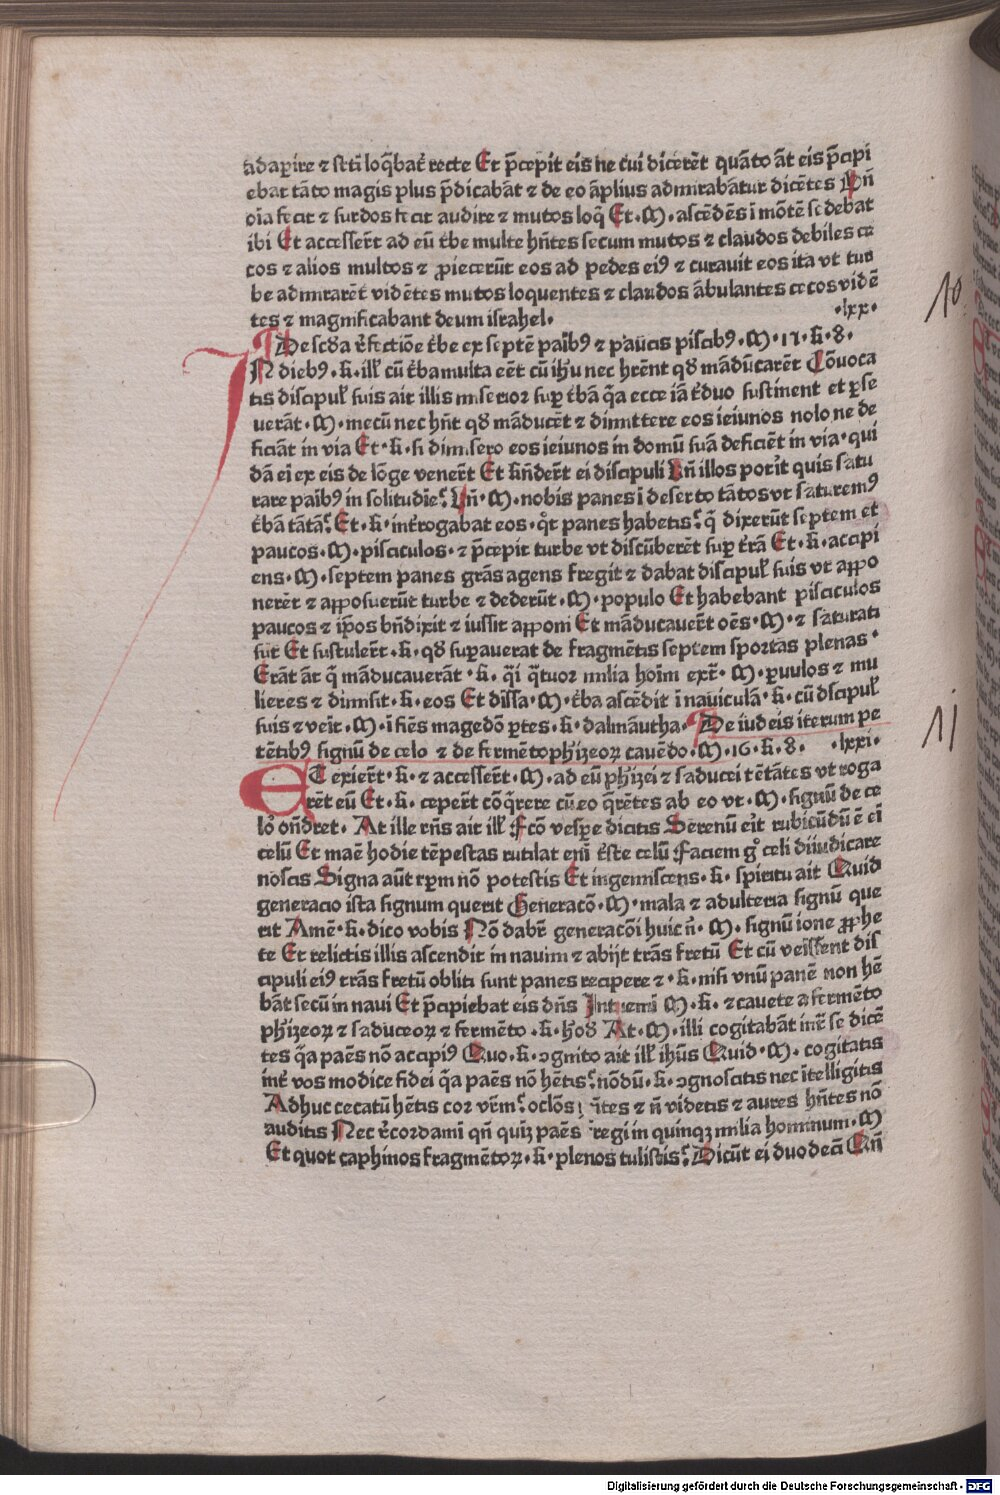 adaꝑire ⁊ sttī loq̄bat᷑ recte Et p̄cepit eis ne cui dicerēt quāto āt eis p̄cipi
ebat tāto magis plus p̄dicabāt ⁊ de eo āplius admirabātur dicētes Bn̄
oīa fecit ⁊ surdos fecit audire ⁊ mutos loq̄ Et · M · ascēdēs ī mōtē sedebat
ibi Et accesser̄t ad eū t᷑be multe hn̄tes secum mutos ⁊ claudos debiles ce
cos ⁊ alios multos ⁊ ꝓiecerūt eos ad pedes eiꝰ ⁊ curavit eos ita vt tur
be admirarēt vidētes mutos loquentes ⁊ claudos ābulantes cecos vidē
tes ⁊ magnificabant deum israhel ·
· lxx ·
De scd̄a r᷑fectiōe t᷑be ex septē paībꝰ ⁊ paucis piscibꝰ · M · 15 · k · 8 ·
IN diebꝰ · k · ill᷑ cū t᷑ba multa eēt cū ih̄u nec hr̄ent qd̄ mādūcarēt Cōuoca
tis discipul᷑ suis ait illis misereor suꝑ t᷑bā q̄a ecce iā t᷑duo sustinent et ꝑse
uerāt · M · mecū nec hn̄t qd̄ māducēt ⁊ dimittere eos ieiunos nolo ne de
ficiāt in via Et · k · si dimisero eos ieiunos in domū suā deficiēt in via · qui
dā eī ex eis de lōge vener̄t Et rn̄der̄t ei discipuli Vn̄ illos poti᷑t quis satu
rare paībꝰ in solitudīe? Vn̄ · M · nobis panes ī deserto tātos vt saturemꝰ
t᷑bā tātā? Et · k · int᷑rogabat eos · qͦt panes habetis? q̄ dixerūt septem et
paucos · M · pisciculos · ⁊ p̄cepit turbe vt discūberēt suꝑ t᷑rā Et · k · accipi
ens · M · septem panes grās agens fregit ⁊ dabat discipul᷑ suis vt aꝑpo
nerēt ⁊ apposuerūt turbe ⁊ dederūt · M · populo Et habebant pisciculos
paucos ⁊ ip̄os bn̄dixit ⁊ iussit apponi Et māducauer̄t oēs · M · ⁊ saturati
sūt Et sustuler̄t · k · qd̄ suꝑauerat de fragmētis septem sportas plenas ·
Erāt āt q̄ māducauerāt · k · q̄si q̄tuor milia hoīm ext᷑ · M · ꝑuulos ⁊ mu
lieres ⁊ dimisit · k · eos Et dissa · M · t᷑ba ascēdit ī nauiculā · k · cū dscipul᷑
suis ⁊ veīt · M · ī fīes magedō ꝑtes · k · dalmāutha · De iudeis iterum pe
tētibꝰ signū de celo ⁊ de fermēto ph᷑izeoꝝ cauēdo · M · 16 · k · 8 · · lxxi ·
ET exier̄t · k · ⁊ accesser̄t · M · ad eū ph᷑izei ⁊ saducei tētātes vt roga
rēt eū Et · k · ceper̄t cōq̄rere cū eo q̄rētes ab eo vt · M · signū de ce
lo on̄dret · At ille rn̄s ait ill᷑ Fc̄o vesp̄e dicitis Serenū ei᷑t rubicūdū ē eī
celū Et maē hodie tēpestas rutilat enī t᷑ste celū Faciem gͦ celi diiudicare
noscis Signa aūt tꝑm nō potestis Et ingemiscens · k · spiritu ait Quid
generacio ista signum querit Generacō · M · mala ⁊ adulteria signū que
rit Amē · k · dico vobis Nō dabit᷑ generacōi huic n̄ · M · signū ione ꝓphe
te Et relictis illis ascendit in nauim ⁊ abijt trās fretū Et cū veissent dis
cipuli eiꝰ trās fretū obliti sunt panes recipere ⁊ · k · nisi vnū panē non hē
bāt secū in naui Et p̄cipiebat eis dn̄s Intuemī M · k · ⁊ cauete a fermēto
ph᷑izeoꝝ ⁊ saduceoꝝ ⁊ fermēto · k · hod᷑ At · M · illi cogitabāt int᷑ se dicē
tes q̄a paēs nō accepiꝰ Quo · k · ꝯgnito ait ill᷑ ih̄us Quid · M · cogitatis
int᷑ vos modice fidei q̄a paēs nō hētis? nōdū · k · ꝯgnoscitis nec ītelligitis
Adhuc cecatū hētis cor vr̄m? oclōs n̄tes ⁊ n̄ videtis ⁊ aures hn̄tes nō
auditis Nec r᷑cordamī qn̄ quīqꝫ paēs regi in quinqꝫ milia hominum · M
Et quot caphinos fragmētoꝝ · k · plenos tulistis? Dicūt ei duodecī Qn̄
10
11
Digitalisierung gefördert durch die Deutsche Forschungsgemeinschaft - DFG